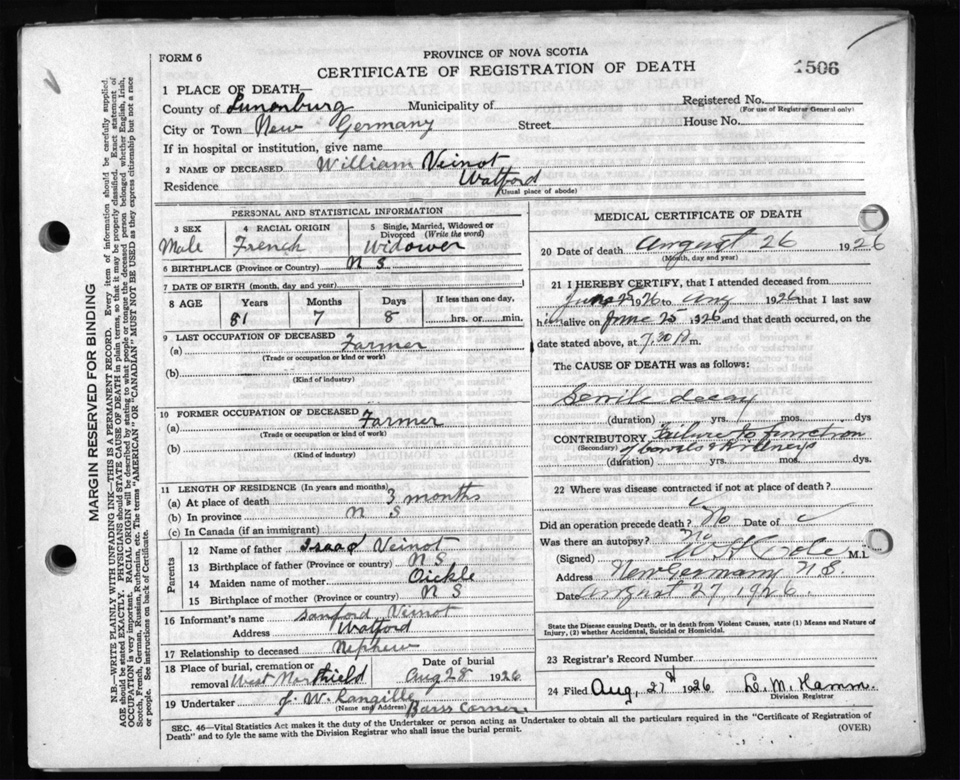 FORM 6
PROVINCE OF NOVA SCOTIA
CERTIFICATE OF REGISTRATION OF DEATH
1506
1 PLACE OF DEATH—
County of Lunenburg Municipality of
Registered No.
(For use of Registrar General only)
City or Town New Germany Street House No.
If in hospital or institution, give name
2 NAME OF DECEASED William Veinot
Residence Watford
(Usual place of abode)
PERSONAL AND STATISTICAL INFORMATION
3 SEX 4 RACIAL ORIGIN 5 Single, Married, Widowed or Divorced (Write the word)
Male French Widower
6 BIRTHPLACE (Province or Country) N S
7 DATE OF BIRTH (month, day, and year)
8 AGE Years Months Days If less than one day,
81 7 8 hrs. or min.
9 LAST OCCUPATION OF DECEASED
(a) Farmer
(Trade or occupation or kind or work)
(b)
(Kind of industry)
10 FORMER OCCUPATION OF DECEASED
(a) Farmer
(Trade or occupation or kind of work)
(b)
(Kind of industry)
11 LENGTH OF RESIDENCE (In years and months)
(a) At place of death 3 months
(b) In province N S
(c) In Canada (if an immigrant)
Parents
12 Name of father Isaac Veinot
13 Birthplace of father (Province or country) N S
14 Maiden name of mother Oickle
15 Birthplace of mother (Province or country) N S
16 Informant's name Sanford Veinot
Address Watford
17 Relationship to deceased Nephew
18 Place of burial, cremation or removal West Northfield
Date of burial Aug 28 1926
19 Undertaker J. W.
(Name and Address) Barss Corner
MEDICAL CERTIFICATE OF DEATH
20 Date of death August 26 1926
(Month, day and year)
21 I HEREBY CERTIFY, that I attended deceased from
June 1926 to Aug 1926 that I last saw
him alive on June 25 1926 and that death occurred, on
the date stated above, at 7.30 P.m.
The CAUSE OF DEATH was as follows:
Senile decay
(duration) yrs. mos. dys
CONTRIBUTORY Failure of function
(Secondary) of bowels & kidneys
(duration) yrs. mos. dys.
22 Where was disease contracted if not at place of death?
Did an operation precede death? No Date of
Was there an autopsy? No
(Signed) W H Cole M.D.
Address New Germany N.S.
Date August 27, 1926
State the Disease causing Death, or in death from Violent Causes, state (1) Means and Nature of
Injury, (2) whether Accidental, Suicidal or Homicidal.
23 Registrar's Record Number
24 Filed Aug, 27 1926 L. M. Hamm.
Division Registrar
SEC. 46—Vital Statistics Act makes it the duty of the Undertaker or person acting as Undertaker to obtain all the particulars required in the "Certificate of Registration of
Death" and to fyle the same with the Division Registrar who shall issue the burial permit.
(OVER)
MARGIN RESERVED FOR BINDING
N.B.—WRITE PLAINLY WITH UNFADING INK—THIS IS A PERMANENT RECORD. Every item of information should be carefully supplied.
AGE should be stated EXACTLY. PHYSICIANS should STATE CAUSE OF DEATH in plain terms, so that it may be properly classified. Exact statement of
OCCUPATION is very important. RACIAL ORIGIN will be described by stating to what people or tongue the deceased person belonged whether English, Irish,
Scotch, French, German, Russian, Ruthenian, etc. The terms "AMERICAN" OR "CANADIAN" MUST NOT BE USED as they express citizenship but not a race
or people. See instructions on back of Certificate.